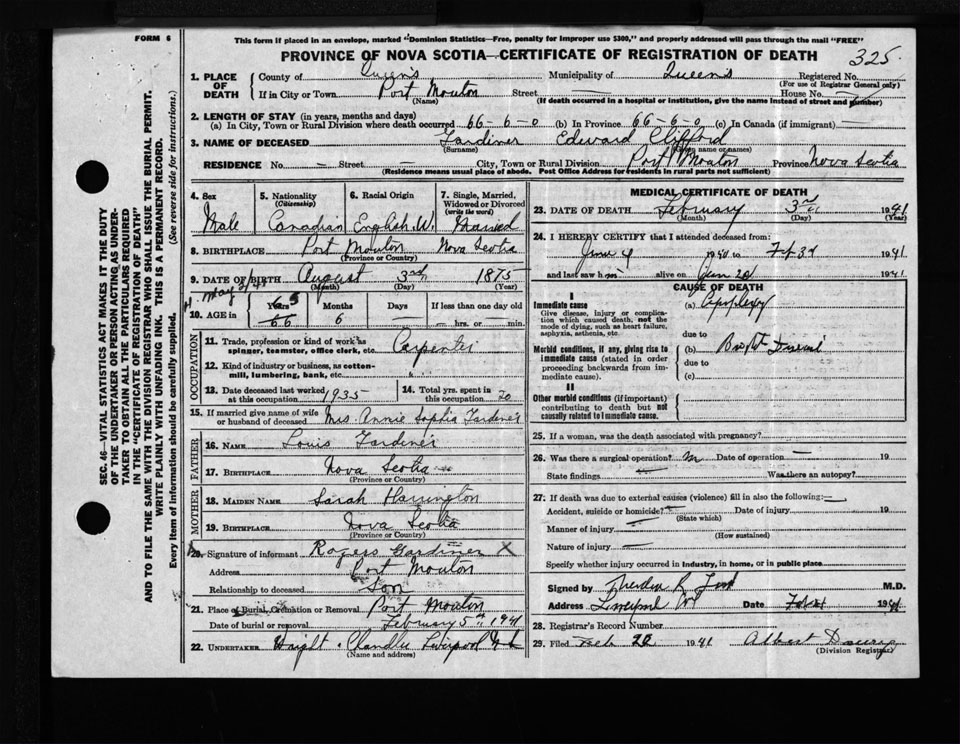 FORM 6
This form if placed in an envelope, marked "Dominion Statistics—Free, penalty for improper use $300," and properly addressed will pass through the mail "FREE"
PROVINCE OF NOVA SCOTIA—CERTIFICATE OF REGISTRATION OF DEATH 325
SEC. 46—VITAL STATISTICS ACT MAKES IT THE DUTY
OF THE UNDERTAKER OR PERSON ACTING AS UNDER-
TAKER TO OBTAIN ALL THE PARTICULARS REQUIRED
IN THE "CERTIFICATE OF REGISTRATION OF DEATH"
AND TO FILE THE SAME WITH THE DIVISION REGISTRAR WHO SHALL ISSUE THE BURIAL PERMIT.
WRITE PLAINLY WITH UNFADING INK. THIS IS A PERMANENT RECORD.
Every item of information should be carefully supplied. (See reverse side for instructions.)
1. PLACE OF DEATH
County of Queen's Municipality of Queens Registered No.
(For use of Registrar General only)
If in City or Town Port Mouton Street — House No. —
(Name) (If death occurred in a hospital or institution, give the name instead of street and number)
2. LENGTH OF STAY (in years, months and days)
(a) In City, Town or Rural Division where death occurred 66-6-0 (b) In Province 66-6-0 (c) In Canada (if immigrant) —
3. NAME OF DECEASED Gardiner Edward Clifford
(Surname) (Given name or names)
RESIDENCE No. — Street — City, Town or Rural Division Port Mouton Province Nova Scotia
(Residence means usual place of abode. Post Office Address for residents in rural parts not sufficient)
4. Sex
Male
5. Nationality
(Citizenship)
Canadian
6. Racial Origin
English W.
7. Single, Married,
Widowed or Divorced
(write the word)
Married
8. BIRTHPLACE Port Mouton Nova Scotia
(Province or Country)
9. DATE OF BIRTH August 3rd 1875
(Month) (Day) (Year)
10. AGE in
Years Months Days If less than one day old
66 65 6 — hrs. or min.
OCCUPATION
11. Trade, profession or kind of work as
spinner, teamster, office clerk, etc. Carpenter
12. Kind of industry or business, as cotton-
mill, lumbering, bank, etc. "
13. Date deceased last worked
at this occupation 1935
14. Total yrs. spent in
this occupation 20
15. If married give name of wife
or husband of deceased Mrs. Annie Sophia Gardiner
FATHER
16. NAME Louis Gardiner
17. BIRTHPLACE Nova Scotia
(Province or Country)
MOTHER
18. MAIDEN NAME Sarah Harrington
19. BIRTHPLACE Nova Scotia
(Province or Country)
20. Signature of informant Rogers Gardiner X
Address Port Mouton
Relationship to deceased Son
21. Place of Burial, Cremation or Removal Port Mouton
Date of burial or removal February 5th 1941
22. UNDERTAKER Wright Chandler Liverpool N S
(Name and address)
MEDICAL CERTIFICATE OF DEATH
23. DATE OF DEATH February 3rd 1941
(Month) (Day) (Year)
24. I HEREBY CERTIFY that I attended deceased from:
June 4 1940 to Feb 3d 1941
and last saw him alive on 1941
CAUSE OF DEATH
I
Immediate cause
Give disease, injury or complica-
tion which caused death, not the
mode of dying, such as heart failure,
asphyxia, asthenia, etc.
(a) Apoplexy
due to
Morbid conditions, if any, giving rise to
immediate cause (stated in order
proceeding backwards from im-
mediate cause).
(b) Bright Disease
due to
(c)
II
Other morbid conditions (if important)
contributing to death but not
causally related to immediate cause.
25. If a woman, was the death associated with pregnancy?
26. Was there a surgical operation? no Date of operation — 19
State findings — Was there an autopsy?
27. If death was due to external causes (violence) fill in also the following:—
Accident, suicide or homicide? — Date of injury 19
(State which)
Manner of injury —
(How sustained)
Nature of injury —
Specify whether injury occurred in industry, in home, or in public place
Signed by M.D.
Address Liverpool Date 1941
28. Registrar's Record Number
29. Filed Feb 22 1941 Albert
(Division Registrar)